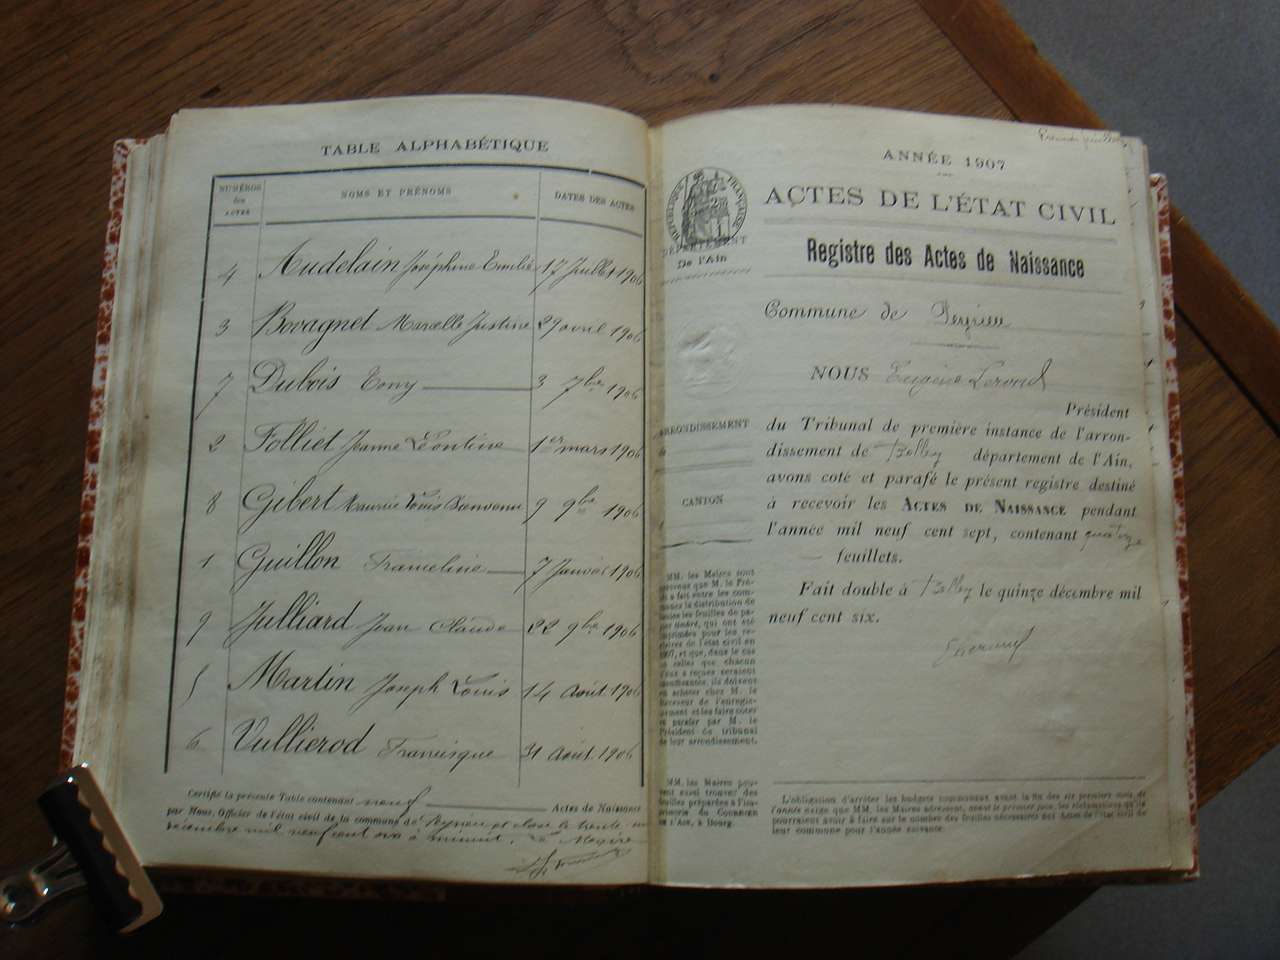 TABLE ALPHABÉTIQUE
NUMÉROS des ACTES
NOMS ET PRÉNOMS
DATES DES ACTES
4 Audelain Joséphine Emilie 17 Juillet 1906
3 Bovagnet Marcelle Justine 29 avril 1906
7 Dubois Tony 3 7bre 1906
2 Folliet Jeanne Léontine 1er mars 1906
8 Gibert Maurice Louis Bienvenu 9 9bre 1906
1 Guillon Franceline 7 Janvier 1906
9 Julliard Jean Claude 22 9bre 1906
5 Martin Joseph Louis 14 Août 1906
6 Vullierod Francisque 31 Août 1906
Certifié la présente Table contenant neuf Actes de Naissance
par Nous, Officier de l'état civil de la commune de Peyrieu et close le trente-un
décembre mil neuf cent six à minuit. Le Maire
ANNÉE 1907
ACTES DE L'ÉTAT CIVIL
RÉPUBLIQUE FRANÇAISE
DÉPARTEMENT
De l'Ain
Registre des Actes de Naissance
Commune de Peyrieu
NOUS Eugène
Président
du Tribunal de première instance de l'arron-
dissement de Belley département de l'Ain,
avons coté et parafé le présent registre destiné
à recevoir les ACTES DE NAISSANCE pendant
l'année mil neuf cent sept, contenant quatorze
feuillets.
Fait double à Belley le quinze décembre mil
neuf cent six.
ARRONDISSEMENT
CANTON
MM. les Maires sont
prévenus que M. le Pré-
fet a fait entre les com-
munes la distribution de
toutes les feuilles de pa-
pier timbré, qui ont été
imprimées pour les re-
gistres de l'état civil en
1907, et que, dans le cas
où celles que chacun
d'eux a reçues seraient
insuffisantes, ils doivent
en acheter chez M. le
Receveur de l'enregis-
trement et les faire coter
et parafer par M. le
Président du tribunal
de leur arrondissement.
MM. les Maires pour-
ront aussi trouver des
feuilles préparées à l'im-
primerie du COURRIER
DE L'AIN, à Bourg.
L'obligation d'arrêter les budgets communaux avant la fin des six premiers mois de
l'année exige que MM. les Maires adressent, avant le premier juin, les réclamations qu'ils
pourraient avoir à faire sur le nombre des feuilles nécessaires aux Actes de l'état civil de
leur commune pour l'année suivante.